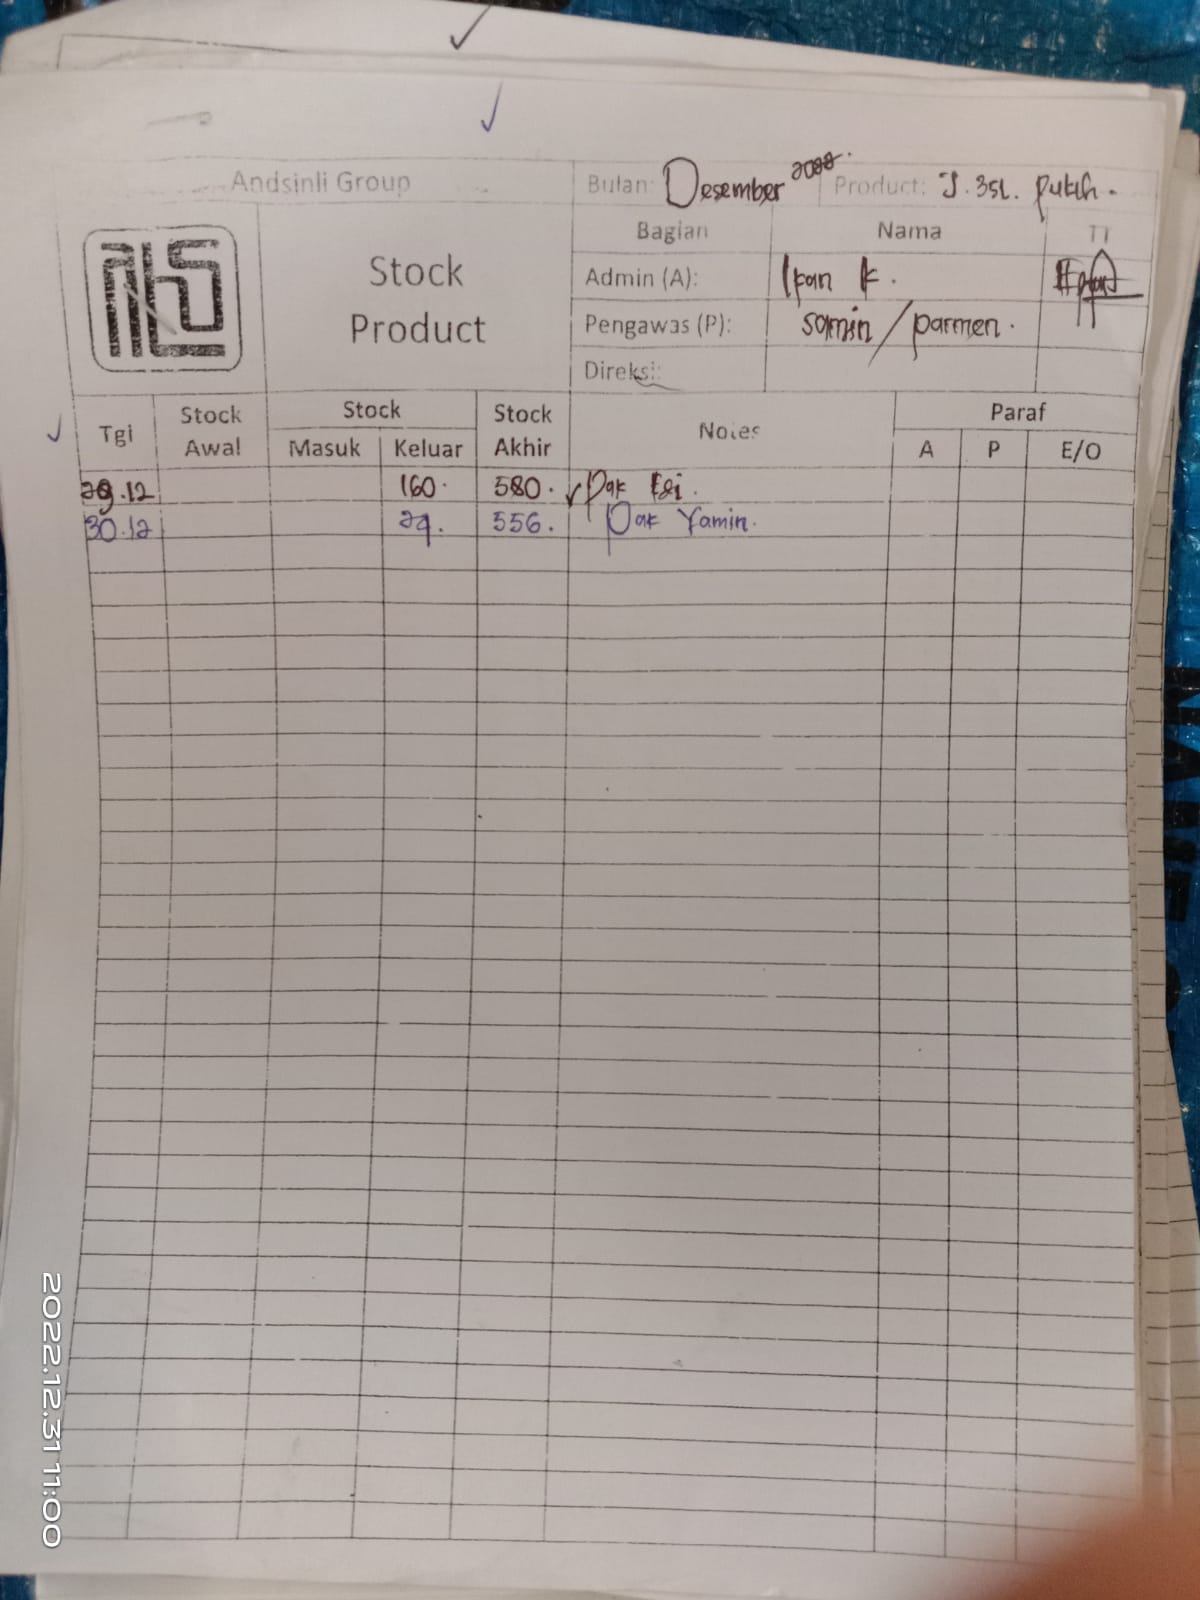 Andsinli Group
Bulan: Desember 2022. Product: J. 35L. putih.
Stock
Product
Bagian Nama TT
Admin (A): Ikan K.
Pengawas (P): samin / parmen.
Direksi:
Tgl Stock Awal Stock Masuk Keluar Stock Akhir Notes Paraf A P E/O
29.12 160. 580. Pak Edi.
30.12 24. 556. Pak Yamin.
2022.12.31 11:00